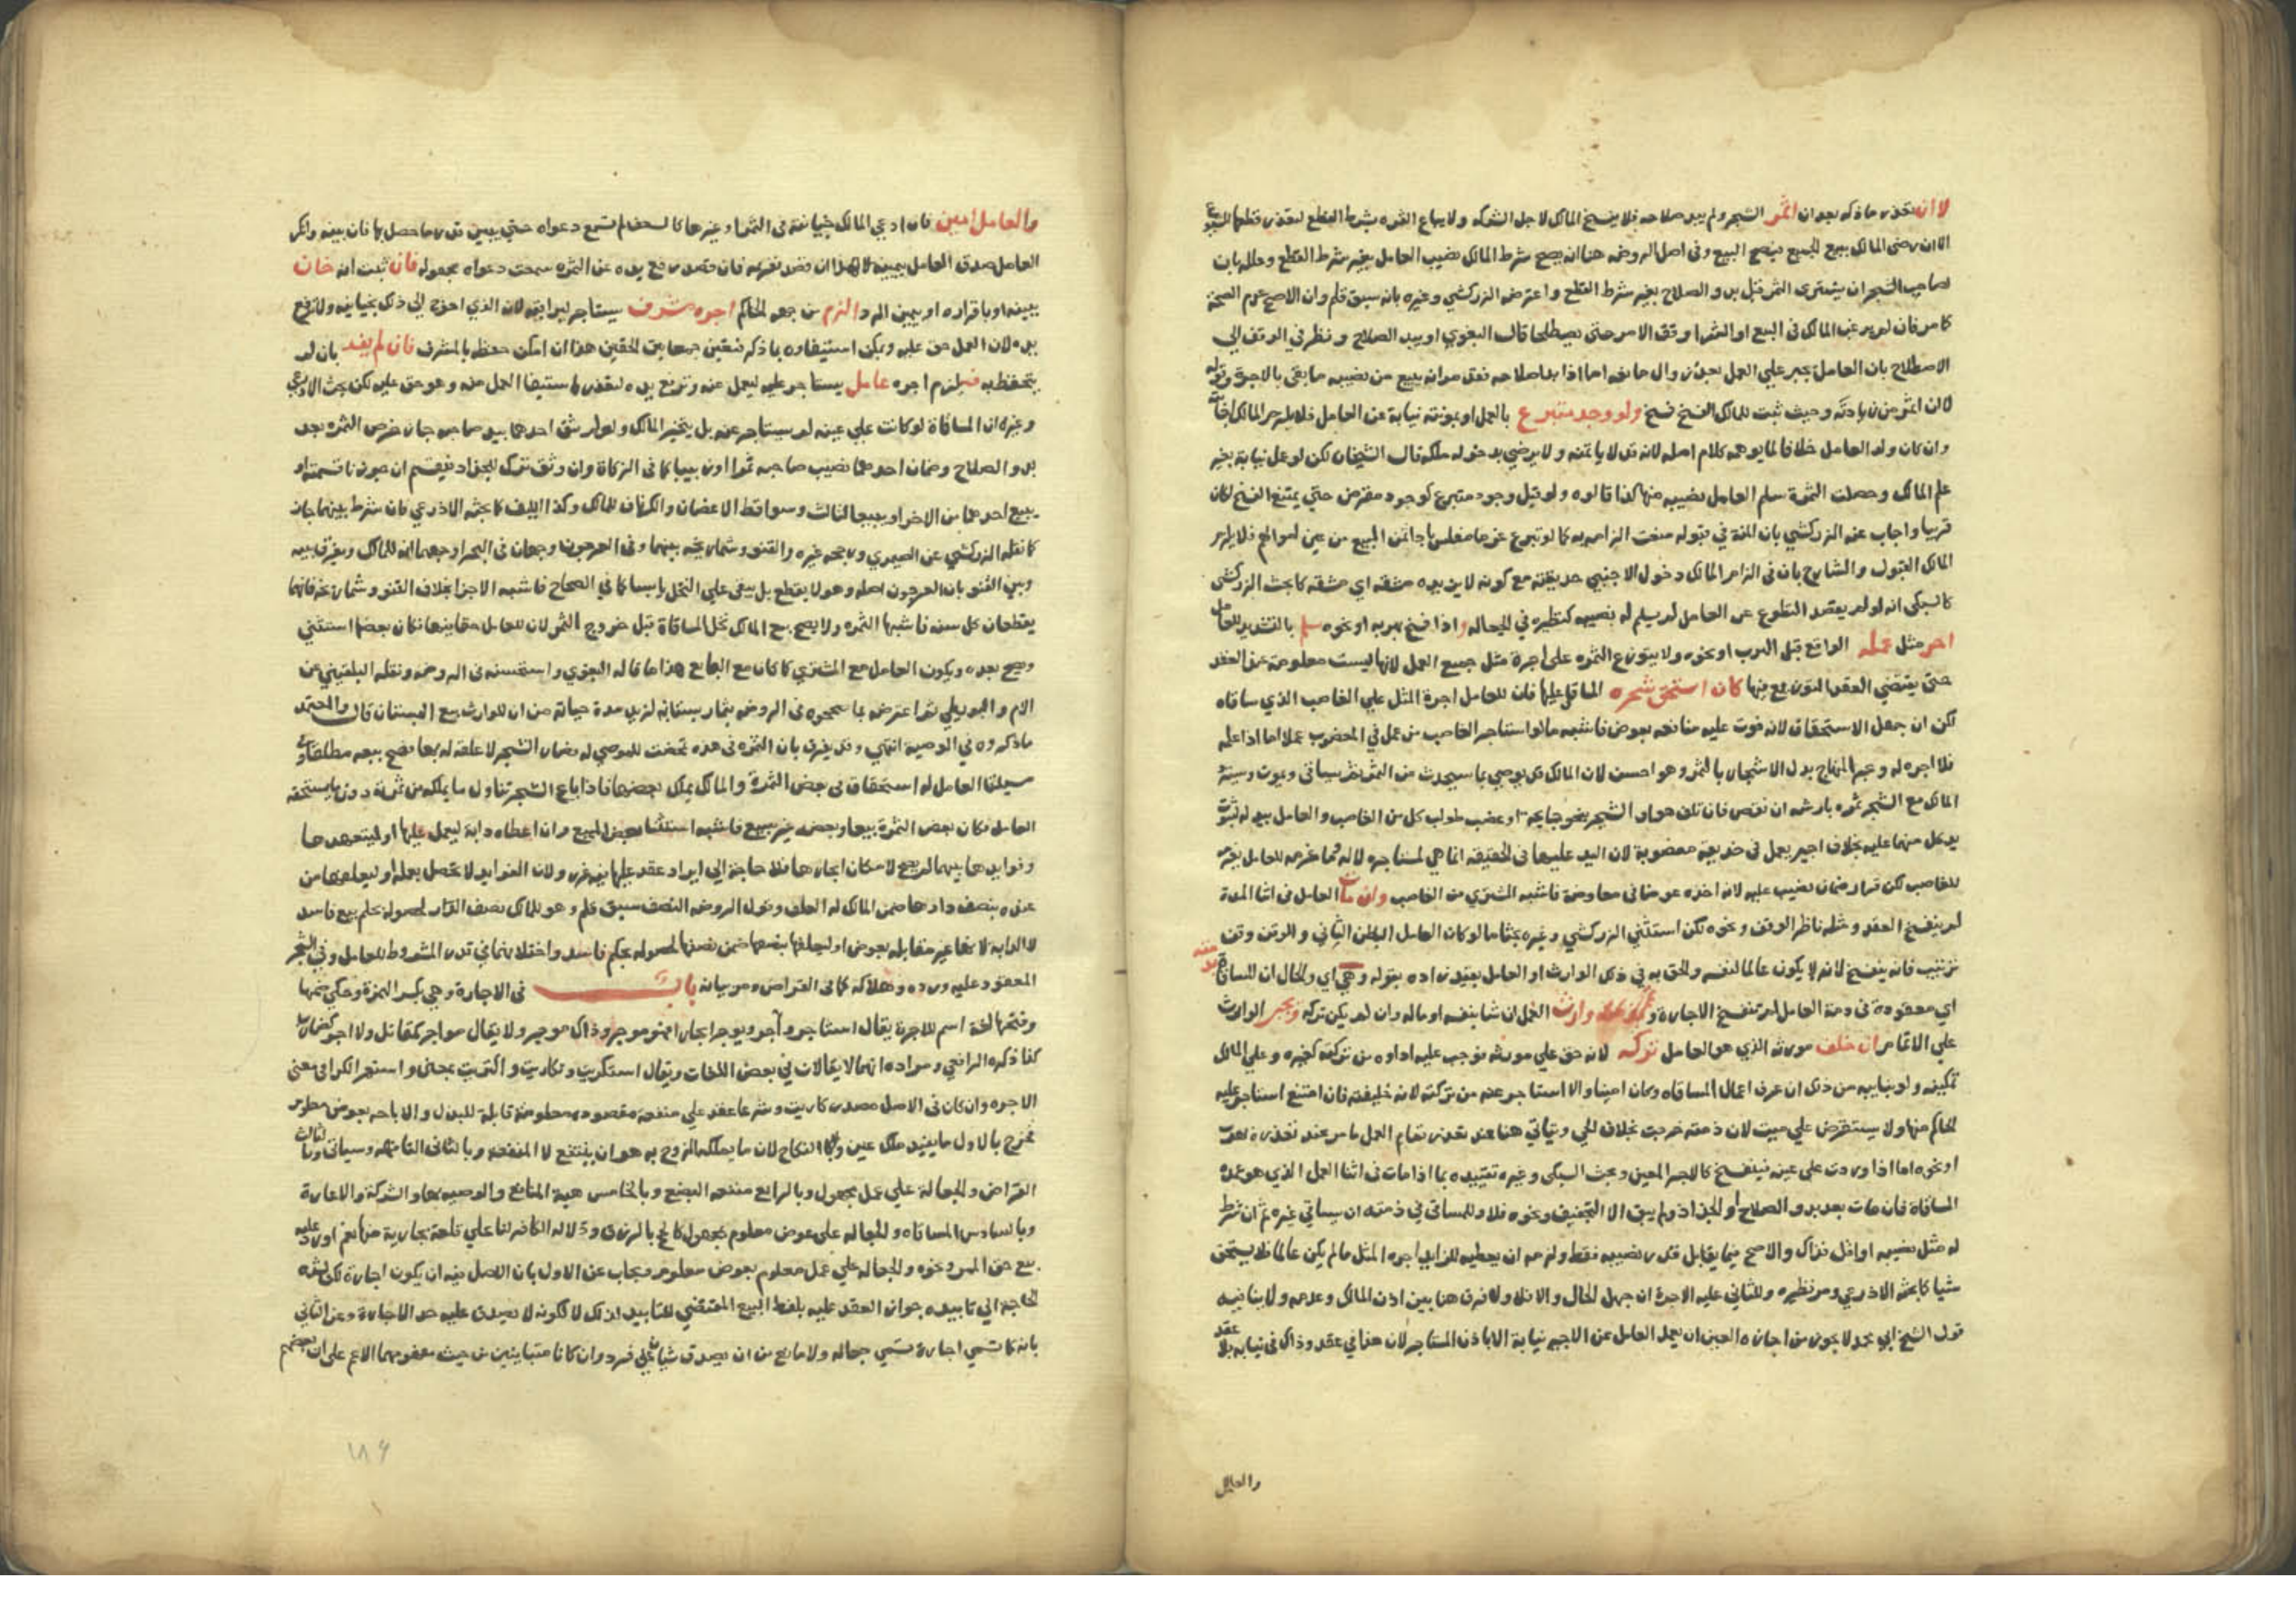 لا ان تعذر ما ذكر بعد ان اثمر الشجر ولم يبد صلاحه فلا يفسخ المالك لاجل الشركه ولا يباع الثمره بشرط القطع لتعذر قطعها
الا ان رضى المالك ببيع الجميع فيصح البيع وفى اصل الروضه هنا ان يصح شرط المالك نصيب العامل بغير شرط القطع وعلله بان
لصاحب الشجر ان يشترى الثمر قبل بدو الصلاح بغير شرط القطع واعترضه الزركشي وغيره بانه سبق قلم وان الاصح عدم الصحة
كامر فان لم يرغب المالك فى البيع او الشرا وقف الامر حتى يصطلحا قال البغوي او يبد الصلاح ونظر في الوقف الى
الاصطلاح بان العامل يجبر علي العمل بعذر زال مانعه اما اذا بدا صلاحه فقد مر انه يبيع من نصيبه ما يفي بالاجرة
لان اثمر من زيادته وحيث ثبت للمالك الفسخ فسخ ولو وجد متبرع بالعمل او بمونته نيابة عن العامل فلا يلزم المالك اجابته
وان كان ولد العامل خلافا لما يوهمه كلام اصله لانه قد لا ياتمنه ولا يرضي بدخوله ملكه قال الشيخان لكن لو عمل نيابة بغير
علم المالك وحصلت الثمرة سلم العامل نصيبه منها كذا قالوه ولو قيل وجود متبرع كوجود مقرض حتي يمتنع الفسخ لكان
قريبا واجاب عنه الزركشي بان المنة في قبوله منعت الزامه به كما لو تبرع غرما مفلس باداثمن المبيع من عين اموالهم فلا يلزم
المالك القبول والشارح بان فى الزام المالك دخول الاجنبي حديقته مع كونه لا يريده مشقه اي مشقه كما بحث الزركشي
كالسبكى انه لو لم يقصد التطوع عن العامل لم يسلم له نصيبه كنظيره في الجعاله واذا فسخ لهربه او نحوه سلم بالتشديد للعامل
اجر مثل عمله الواقع قبل الهرب او نحوه ولا يتوزع الثمره على اجرة مثل جميع العمل لانها ليست معلومة عند العقد
حتى يقتضي العقد التوزيع فيها كان استحق شجره المساقى عليها فان للعامل اجرة المثل علي الغاصب الذي ساقاه
لكن ان جهل الاستحقاق لانه فوت عليه منافعه بعوض فاشبه ما لو استاجر الغاصب من عمل في المغصوب عملا اما اذا علمه
فلا اجره له وعبر المنهاج بدل الاشجار بالثمر وهو احسن لان المالك قد يوصي بما سيحدث من الثمر ثم يساقى ويموت
المالك مع الشجر ثمره بارشه ان نقص فان تلف هو او الشجر بنحو جايحة او غصب طولب كل من الغاصب والعامل
يد كل منهما عليه بخلاف اجير يعمل في حديقة مغصوبة لان اليد عليها فى الحقيقه انما هي لمستاجره لا له
للغاصب لكن قرار ضمان نصيب عليه لانه اخذه عوضا فى معاوضة فاشبه المشتري من الغاصب وان مات العامل فى اثنا المدة
لم ينفسخ العقد ومثله ناظر الوقف ونحوه لكن استثني الزركشي وغيره بحثا ما لو كان العامل البطن الثاني والوقف وقف
ترتيب فانه ينفسخ لانه لا يكون عاملا لنفسه والحق به فى ذلك الوارث او العامل بقيد زاده بقوله وهي اي والحال ان المساقاة
اي معقودة فى ذمة العامل لم تنفسخ الاجارة وارث العمل ان شا بنفسه او ماله وان لم يكن تركه ويجبر الوارث
علي الاتمام ان خلف مورثه الذي هو العامل تركه لانه حق علي مورثه فوجب عليه اداوه من تركته كغيره وعلي المالك
تمكينه ولو بنايبه من ذلك ان عرف اعمال المساقاه وكان امينا والا استاجر عنه من تركته لانه خليفته فان امتنع استاجر عليه
الحاكم منها ولا يستقرض علي ميت لان ذمته خربت بخلاف الحي وياتي هنا عند تعذر تمام العمل ما مر عند تعذره
او نحوه اما اذا وردت على عينه فينفسخ كالاجير المعين وبحث السبكى وغيره تقييده بما اذا مات فى اثنا العمل الذي هو عمدة
المساقاة فان مات بعد بدو الصلاح او الجذاذ ولم يبق الا التجفيف ونحوه فلا وللمساقى في ذمته ان يساقي غيره ثم ان شرط
له مثل نصيبه او اقل فذاك والاصح فيما يقابل قدر نصيبه فقط ولزمه ان يعطيه للزايد اجره المثل ما لم يكن عالما فلا يستحق
شيا كما بحثه الاذرعي ومر نظيره وللثاني عليه الاجرة ان جهل الحال والا فلا ولا فرق هنا بين اذن المالك وعدمه ولا ينافيه
قول الشيخ ابي محمد لا يجوز من اجارة العين ان يعمل العامل عن الاجير نيابة الا باذن المستاجر لان هذا في عقد وذاك فى نيابة بلا عقد
والعامل
والعامل امين فان ادعي المالك خيانة فى الثمر او غيرها كالسعف لم تسمع دعواه حتي يبين قدر ما حصل بها فان بينه وانكر
العامل صدق العامل بيمينه فان قصد رفع يده عن الثمره سمعت دعواه بمجهوله فان ثبت انه خان
ببينه او باقراره او بيمين الرد الزم من جهه الحاكم اجره مشرف يستاجر ليراقبه لان الذي احوج الى ذلك خيانته ولا ترفع
يده لان العمل حق عليه ويمكن استيفاوه بما ذكر فتعين جمعا بين الحقين هذا ان امكن حفظه بالمشرف فان لم يفد بان لم
يتحفظ به فيلزم اجره عامل يستاجر عليه ليعمل عنه وترفع يده لتعذر استيفا العمل منه وهو حق عليه لكن بحث الاذرعي
وغيره ان المساقاة لو كانت علي عينه لم يستاجر عنه بل يتخير المالك ولو لم يثق احدهما بيد صاحبه جاز خرص الثمره بعد
بدو الصلاح وضمان احدهما نصيب صاحبه تمرا او زبيبا كما فى الزكاة وان وثق ترك للجذاذ فيقسم ان جوزنا قسمته او
يبيع احدهما من الاخر او يبيعا لثالث وسواقط الاغصان والكرناف للمالك وكذا الليف كما بحثه الاذرعي فان شرط بينهما جاز
كما نقله الزركشي عن الصيمري ورجحه غيره والقنو وشماريخه بينهما وفى العرجون وجهان فى البحر اوجههما انه للمالك ويفرق بينه
وبين القنو بان العرجون اصله وهو لا يقطع بل يبقى علي النخل يابسا كما في الصحاح فاشبه الاجزا بخلاف القنو وشماريخه فانهما
يقطعان كل سنه فاشبها الثمره ولا يصح بيع المالك نخل المساقاة قبل خروج الثمر لان للعامل حقا فيها فكان بعضها استثني
وصح بعده ويكون العامل مع المشتري كما كان مع البايع هذا ما قاله البغوي واستحسنه فى الروضه ونقله البلقيني عن
الام والبويطي ثم اعترضه بما صححوه فى الروضه بثمار بستانه لزيد مدة حياته من ان للوارث بيع البستان قال والمعتمد
ماذكروه في الوصية انتهي وقد يفرق بان الثمره فى هذه تمحضت للموصي له فصار الشجر لا علقه له بها فصح بيعه مطلقا
مسيلتنا العامل له استحقاق فى بعض الثمرة والمالك يملك بعضها فاذا باع الشجر تناول ما يملكه من ثمرة دون ما يستحقه
العامل فكان بعض الثمرة بيعا وبعضه غير بيع فاشبه استثنا بعض المبيع وان اعطاه دابة ليعمل عليها او ليتعهدها
وفوايدها بينهما لم يصح لامكان ايجارها فلا حاجة الي ايراد عقد عليها فيه غرر ولان الفوايد لا تحصل بعمله او ليعلفها من
عنده بنصف درها ضمن المالك له العلف وقول الروضه النصف سبق قلم وهو للمالك نصف الدر لحصوله بحكم بيع فاسد
لا الدابه لانها غير مقابله بعوض او ليعلفها بنصفها ضمن نصفها لحصوله بحكم فاسد واختلافهما في قدر المشروط للعامل وفي الشجر
المعقود عليه ورده وهلاكه كما فى القراض ومر بيانه باب فى الاجارة وهي بكسر الهمزة وحكي ضمها
وفتحها لغة اسم للاجرة يقال استاجر وآجر ويوجر ايجارا فهو موجر وذاك موجر ولا يقال مواجر كمقاتل ولا اجر
كذا ذكره الرافعي ومراده انهما لا يقالان في بعض اللغات ويقال استكريت وتكاريت واكتريت بمعنى واستعمر الكرا فى معنى
الاجره وان كان فى الاصل مصدر كاريت وشرعا عقد علي منفعة مقصودة معلومة قابلة للبذل والاباحه بعوض معلوم
فخرج بالاول ما يفيد ملك عين وكذا النكاح لان ما يملكه الزوج به هو ان ينتفع لا المنفعه وبالثانى التافهه وسياتى وبالثالث
القراض والجعالة علي عمل مجهول وبالرابع منفعه البضع وبالخامس هبة المنافع والوصيه بها والشركة والاعارة
وبالسادس المساقاه والجعاله على عوض معلوم مجهول كالحج بالرزق ودلالة الكافر لنا علي قلعة بجارية منها نعم اورد عليه
بيع حق الممر ونحوه والجعاله علي عمل معلوم بعوض معلوم ويجاب عن الاول بان الاصل فيه ان يكون اجارة لكن
الحاجة الي تابيده جواز العقد عليه بلفظ البيع المقتضي للتابيد لذلك لا لكونه لا يصدق عليه حد الاجارة وعن الثانى
بانه كما تسمي اجارة تسمي جعاله ولا مانع من ان يصدق شيان علي فرد وان كانا متباينين من حيث مفهومهما الاعم على ان بعضهم
١٨٦